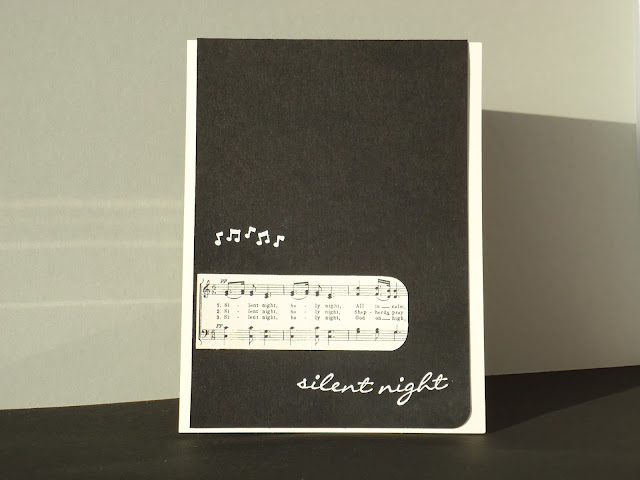 pp
1. Si - lent night, ho - ly night, All is calm,
2. Si - lent night, ho - ly night, Shep - herds pray
3. Si - lent night, ho - ly night, God on high,
silent night